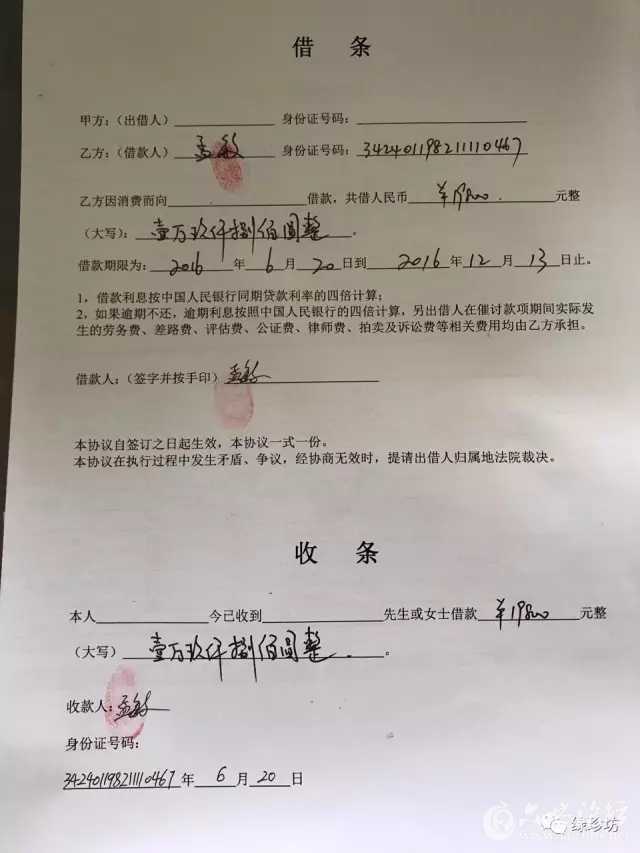 借 条
甲方：（出借人）____________ 身份证号码：____________
乙方：（借款人） 孟敏 身份证号码： 342401198211110467
乙方因消费而向____________借款，共借人民币 ¥19800 元整
（大写）： 壹万玖仟捌佰圆整 。
借款期限为： 2016 年 6 月 20 日到 2016 年 12 月 13 日止。
1，借款利息按中国人民银行同期贷款利率的四倍计算；
2，如果逾期不还，逾期利息按照中国人民银行的四倍计算，另出借人在催讨款项期间实际发
生的劳务费、差路费、评估费、公证费、律师费、拍卖及诉讼费等相关费用均由乙方承担。
借款人：（签字并按手印） 孟敏
本协议自签订之日起生效，本协议一式一份。
本协议在执行过程中发生矛盾、争议，经协商无效时，提请出借人归属地法院裁决。
收 条
本人____________今已收到____________先生或女士借款 ¥19800 元整
（大写） 壹万玖仟捌佰圆整 。
收款人： 孟敏
身份证号码：
342401198211110467 年 6 月 20 日
绿珍坊